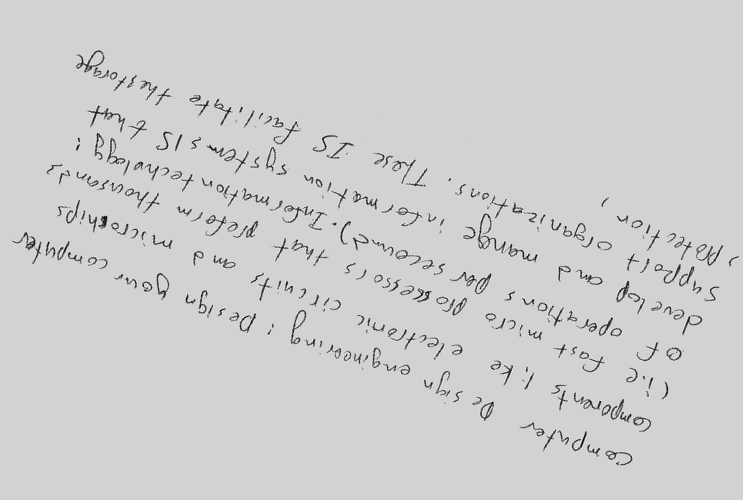 computer Design engineering : Design your computer
components like electronic circuits and microchips
(i.e fast micro processors that preform thousands
of operations per secound). Information techology :
develop and mange information systems IS that
support organizations. These IS facilitate thestorage
, protection ,